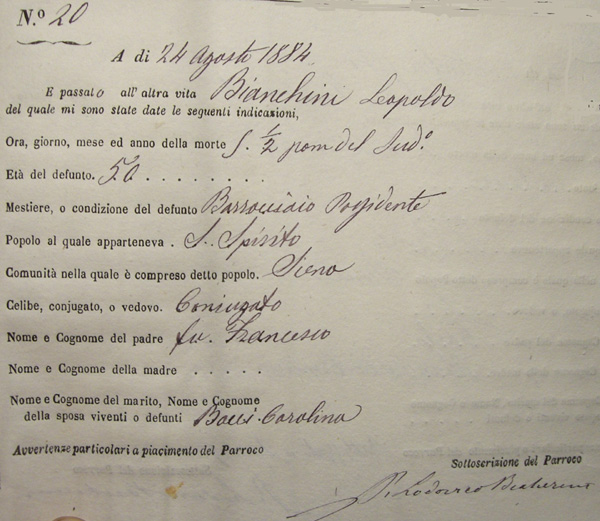 N.º 20
A di 24 Agosto 1884
E passato all' altra vita Bianchini Leopoldo
del quale mi sono state date le seguenti indicazioni,
Ora, giorno, mese ed anno della morte 5. ½ pom del Sudº
Età del defunto. 50 . . . . . . . .
Mestiere, o condizione del defunto Possidente
Popolo al quale apparteneva . S. Spirito
Comunità nella quale è compreso detto popolo. Siena
Celibe, conjugato, o vedovo. Coniugato
Nome e Cognome del padre fu Francesco
Nome e Cognome della madre . . . . .
Nome e Cognome del marito, Nome e Cognome
della sposa viventi o defunti Bacci Carolina
Avvertenze particolari a piacimento del Parroco
Sottoscrizione del Parroco